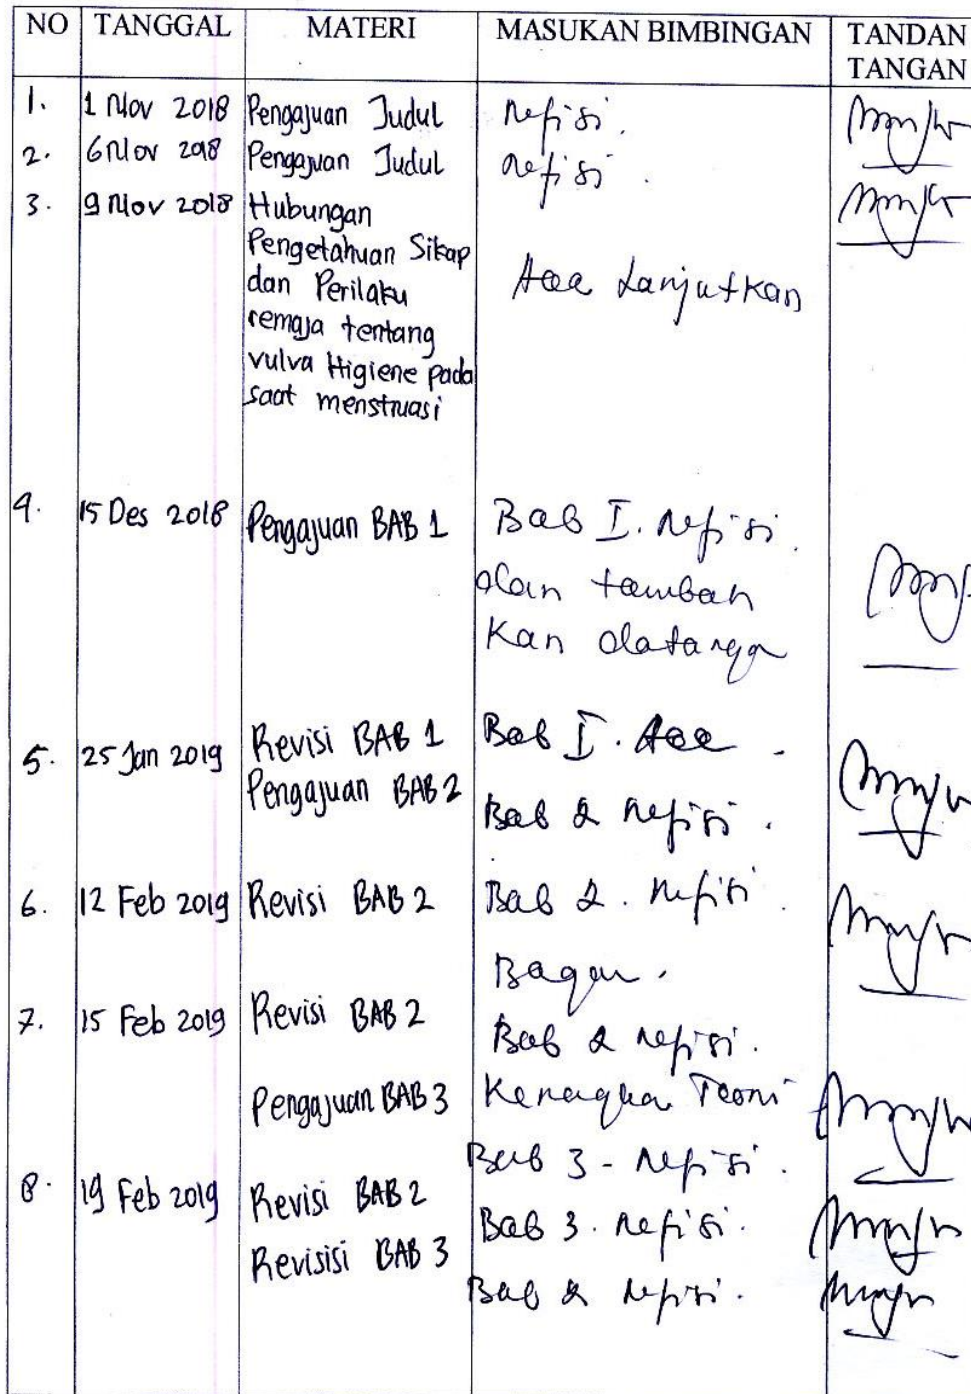 NO TANGGAL MATERI MASUKAN BIMBINGAN TANDAN TANGAN
1. 1 Nov 2018 Pengajuan Judul Refisi.
2. 6 Nov 2018 Pengajuan Judul Refisi.
3. 9 Nov 2018 Hubungan
Pengetahuan Sikap
dan Perilaku
remaja tentang
vulva Higiene pada
saat menstruasi
Acc Lanjutkan
4. 15 Des 2018 Pengajuan BAB 1 Bab I. Refisi.
dan tambah
kan datanya
5. 25 Jan 2019 Revisi BAB 1 Bab I. Acc.
Pengajuan BAB 2 Bab 2 Refisi.
6. 12 Feb 2019 Revisi BAB 2 Bab 2. Refisi.
Bagan.
7. 15 Feb 2019 Revisi BAB 2 Bab 2 refisi.
Pengajuan BAB 3 Kerangka Teori
Bab 3 - Refisi.
8. 19 Feb 2019 Revisi BAB 2 Bab 3. Refisi.
Revisisi BAB 3 Bab 2 Refisi.